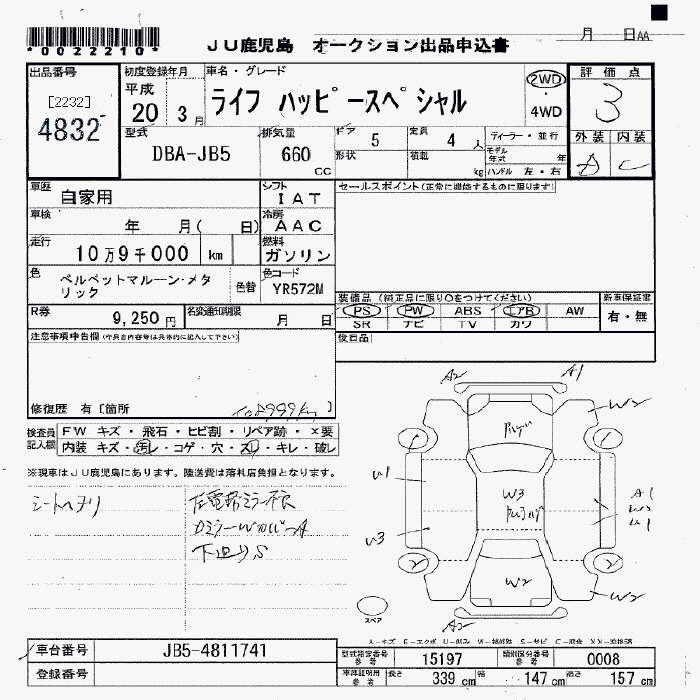 *0022210*
JU鹿児島 オークション出品申込書
月 日AA
出品番号
[2232]
4832
初度登録年月
平成
20 3月
車名・グレード
ライフ ハッピースペシャル
2WD
・
4WD
評価点
3
外装 内装
A C
型式
DBA-JB5
排気量
660
CC
ギア 5
定員 4 人
ディーラー・並行
形状
積載 kg
モデル年式 年
ハンドル 左・右
車歴 自家用
シフト IAT
セールスポイント(正常に機能するものに限ります)
車検 年 月( 日)
冷房 AAC
走行 10万9千000 km
燃料 ガソリン
色 ベルベットマルーン・メタリック
色替
色コード YR572M
R券 9,250円
名変通知期限 月 日
装備品(純正品に限り○をつけてください)
PS PW ABS エアB AW
SR ナビ TV カワ
新車保証書
有・無
後日品
注意事項申告欄
修復歴 有[箇所 ]
検査員記入欄
FW キズ・飛石・ヒビ割・リペア跡・×要
内装 キズ・汚レ・コゲ・穴・スレ・キレ・破レ
※現車はJU鹿児島にあります。陸送費は落札店負担となります。
シートヘタリ
左電格ミラー不良
下廻りS
A2 A1
W2
U1
W3
A1
U1
U3
2
2
W2
W2
A2
スペア
車台番号 JB5-4811741
登録番号
型式指定番号 参考 15197
類別区分番号 参考 0008
車庫証明用 参考 長さ 339cm 幅 147cm 高さ 157cm